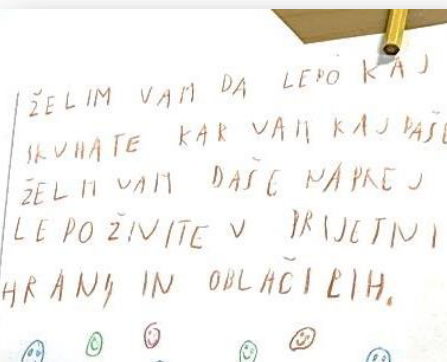 ŽELIM VAM DA LEPO KAJ
SKUHATE KAR VAM KAJ PAŠE
ŽELIM VAM DAŠE NAPREJ
LEPO ŽIVITE V PRIJETNI
HRANI IN OBLAČILIH.